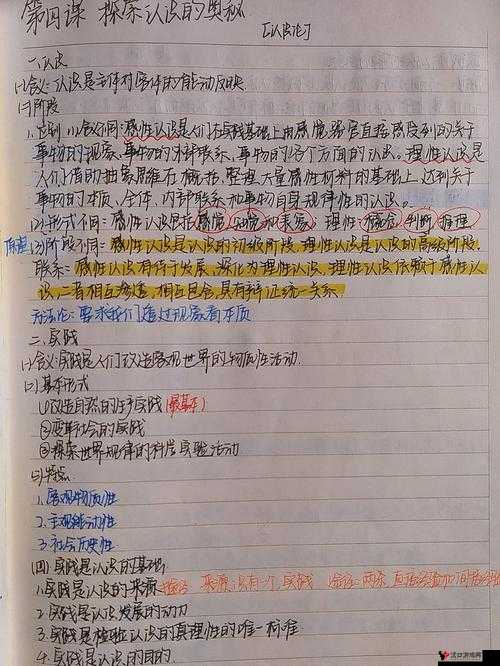 第四课 探索认识的奥秘
[认识论]
一.认识
(一)含义:认识是主体对客体的能动反映.
(二)阶段
1.区别 (1)含义不同:感性认识是人们在实践基础上由感觉器官直接感受到的关于
事物的现象、事物的外部联系、事物的各个方面的认识。理性认识是
人们借助抽象思维在概括、整理大量感性材料的基础上,达到关于
事物的本质、全体、内部联系和事物自身规律性的认识。
(2)形式不同:感性认识包括感觉 知觉和表象 理性:概念 判断 推理
(3)阶段不同:感性认识是认识的初级阶段,理性认识是认识的高级阶段.
联系:感性认识有待于发展、深化为理性认识,理性认识依赖于感性认
识,二者相互渗透,相互包含,具有辩证统一关系.
方法论:要求我们透过现象看本质
二.实践
(一)含义:实践是人们改造客观世界的物质性活动.
(二)基本形式
①改造自然的生产实践(最基本)
②变革社会的实践
③探索世界规律的科学实验活动
(三)特点
1.客观物质性
2.主观能动性
3.社会历史性
(四)实践是认识的基础
1.实践是认识的来源 来源只有一个 实践 途径:两条 直接经验和间接经验
2.实践是认识发展的动力
3.实践是检验认识的真理性的唯一标准
4.实践是认识的目的
汉口游戏网